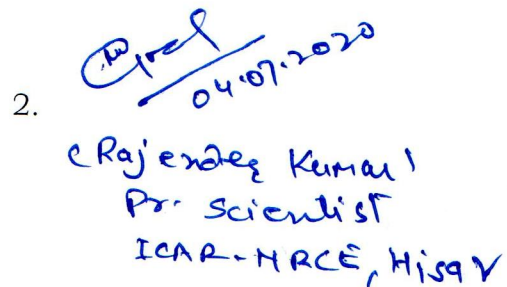 04.07.2020
2.
(Rajender Kumar)
Pr. Scientist
ICAR-NRCE, Hisar